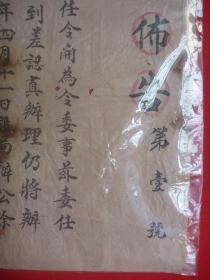 佈告 第壹號
任令開為令委事茲委任
到差認真辦理仍將辦
年四月十一日到局辦公除